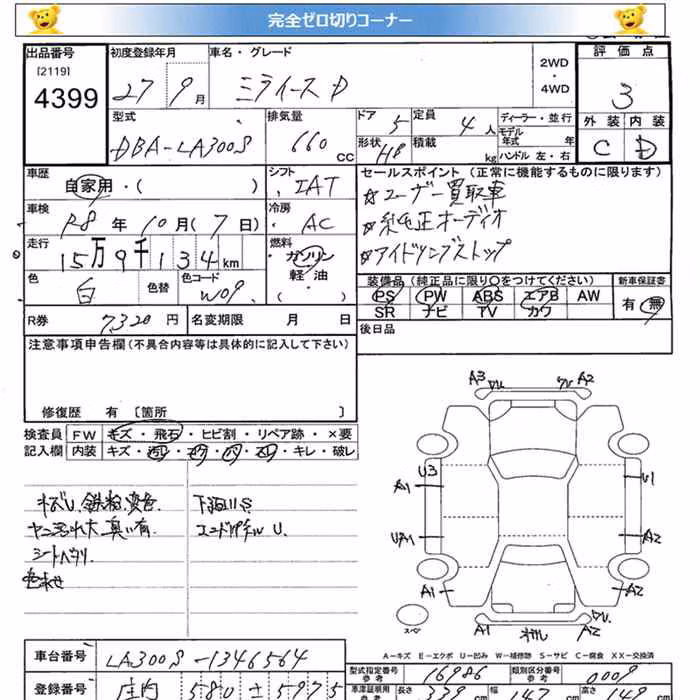 完全ゼロ切りコーナー
出品番号 初度登録年月 車名・グレード 2WD・4WD 評価点
[2119]
4399 27 9月 ミライース D 3
型式 排気量 ドア 5 定員 4人 ディーラー・並行 外装 内装
DBA-LA300S 660 CC 形状 HB 積載 kg モデル年式 年 ハンドル 左・右 C D
車歴 自家用・( ) シフト IAT セールスポイント (正常に機能するものに限ります)
☆ユーザー買取車
車検 R8年10月(7日) 冷房 AC ☆純正オーディオ
走行 15万9千134km 燃料 ガソリン・軽油・( ) ☆アイドリングストップ
色 白 色替 色コード W09 装備品 (純正品に限り○をつけてください) 新車保証書
PS PW ABS エアB AW 有・無
SR ナビ TV カワ
R券 7320円 名変期限 月 日 後日品
注意事項申告欄(不具合内容等は具体的に記入して下さい)
修復歴 有 〔箇所 〕
検査員 FW キズ・飛石・ヒビ割・リペア跡・×要
記入欄 内装 キズ・汚レ・コゲ・穴・スレ・キレ・破レ
キズU.鉄粉.変色. 下廻りS
ヤニ汚れ大.臭い有.
シートヘタリ.
色あせ
A3 A2
U3 U1
A1
UA1 A2
A1 A2
A1 A2
スペア
A-キズ E-エクボ U-凹み W-補修跡 S-サビ C-腐食 XX-交換済
車台番号 LA300S-1346564 型式指定番号 参考 16986 類別区分番号 参考 0009
登録番号 庄内 580 せ 5975 車庫証明用 参考 長さ 339 cm 幅 147 cm 高さ 149 cm